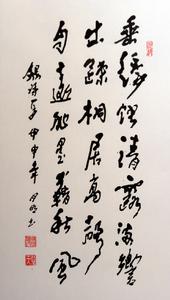 垂緌飲清露流響
出疎桐居高聲
自遠非是藉秋風
甲申年